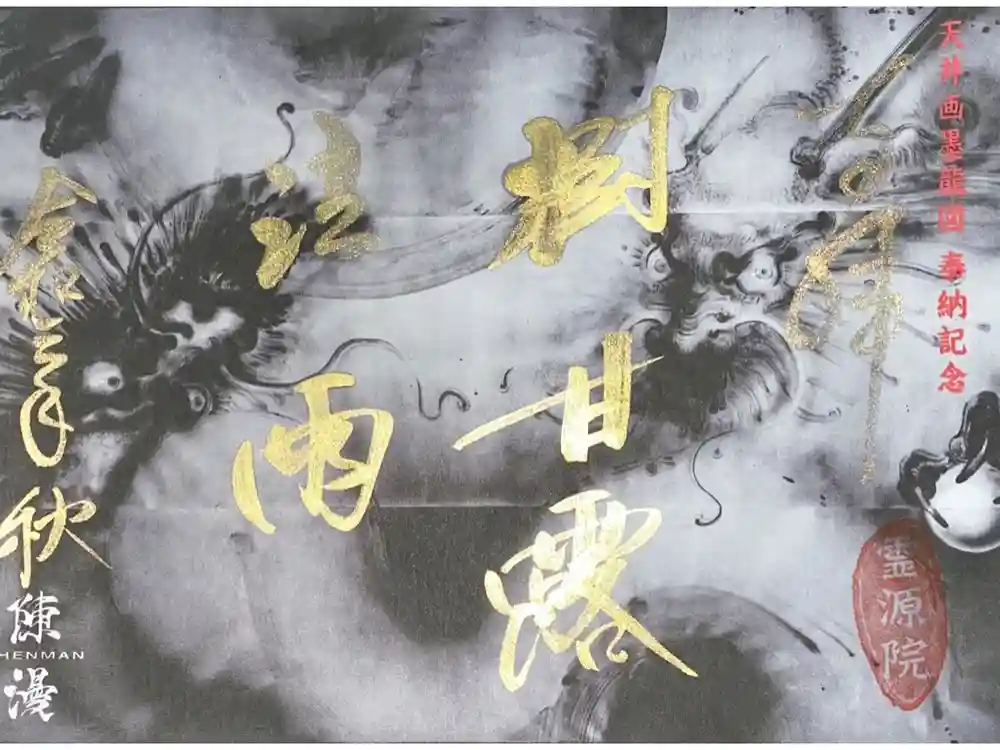 天井画墨龍図 奉納記念
奉拝
霊源院
澍甘露
法雨
令和三年秋
陳
HENMAN
漫